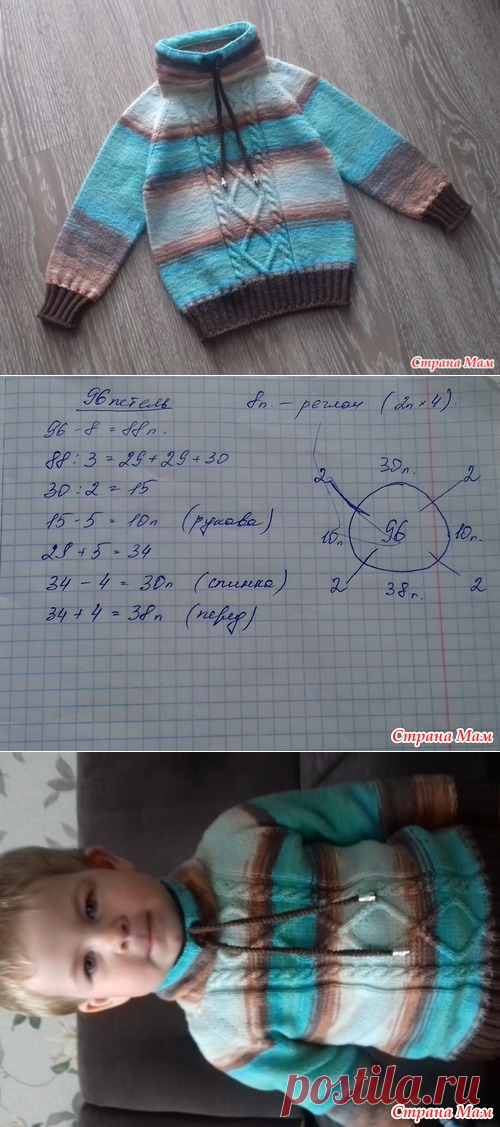 Страна Мам
96 петель
8п. – реглан (2п × 4).
96 - 8 = 88п.
88 : 3 = 29 + 29 + 30
30 : 2 = 15
15 - 5 = 10п (рукава)
29 + 5 = 34
34 - 4 = 30п (спинка)
34 + 4 = 38п (перед)
30п.
2 2
10п 96 10п
2 38п. 2
Страна Мам
postila.ru
Страна Мам